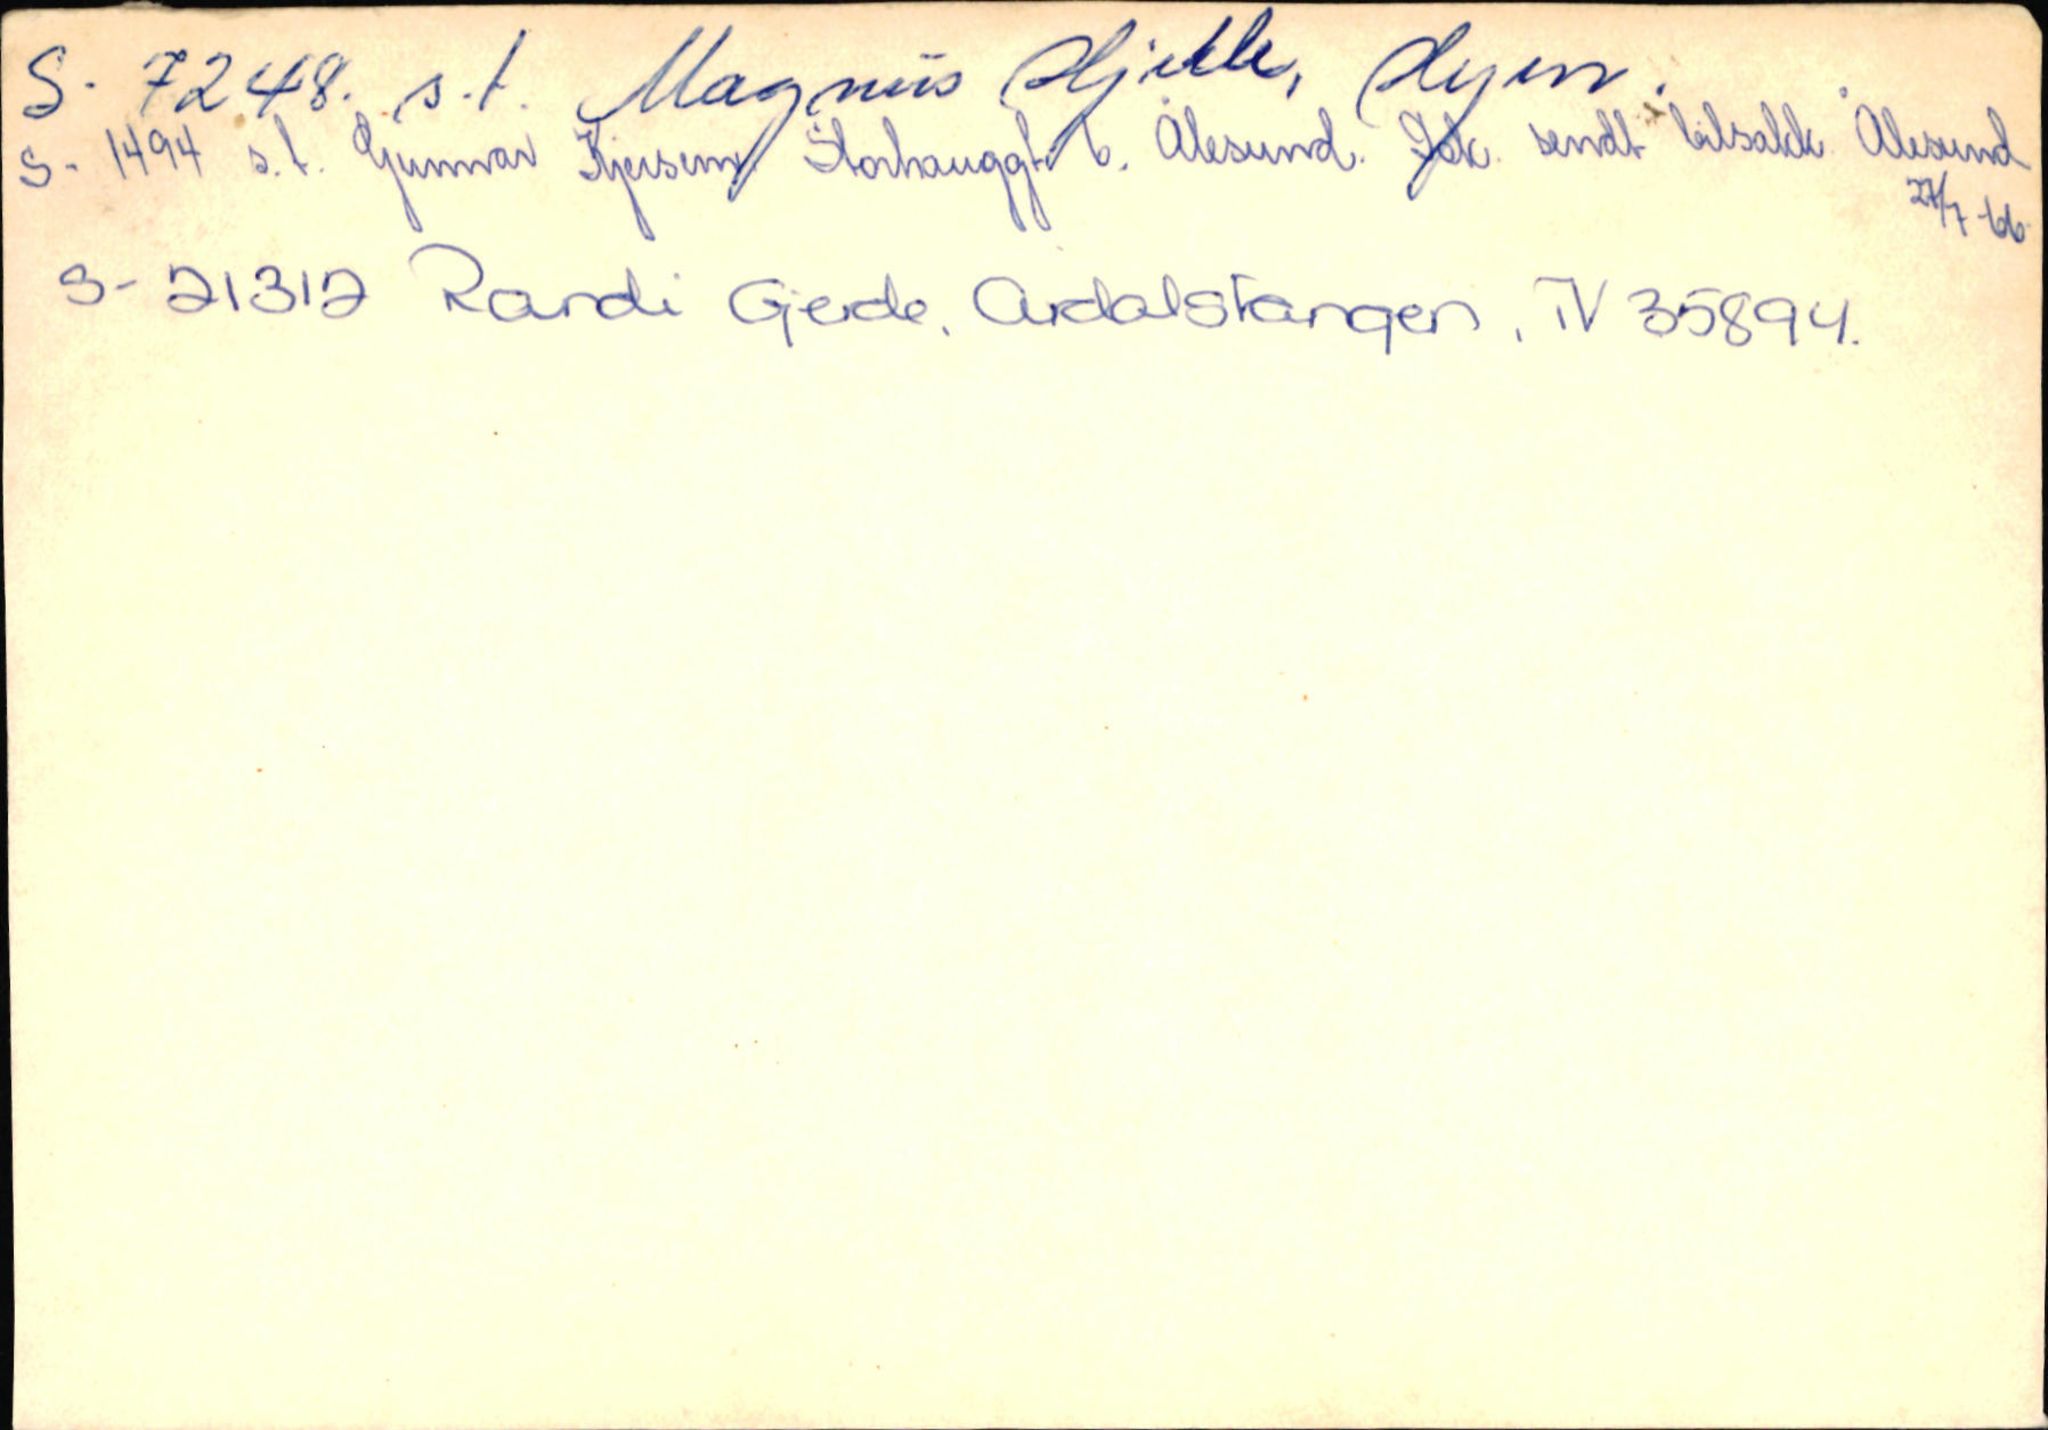 S- 7248. s.t. Magnus Hjelle, Hyen.
S- 1494 s.t. Gunnar Kjersem Storhauggt. 6. Ålesund. Idk. sendt bilsakk. Ålesund
27/7-66.
S- 21312 Randi Gjerde, Årdalstangen, TV 35894.